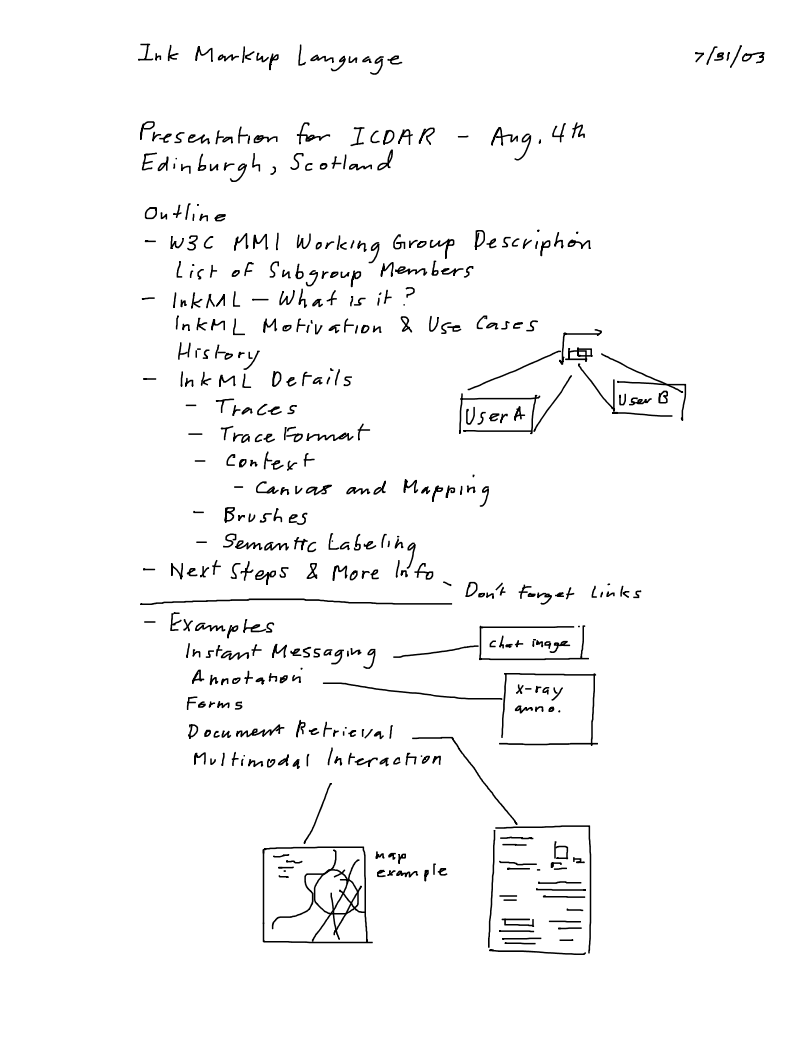 Ink Markup Language 7/31/03
Presentation for ICDAR - Aug. 4th
Edinburgh, Scotland
Outline
- W3C MMI Working Group Description
List of Subgroup Members
- InkML - What is it?
InkML Motivation & Use Cases
History
- InkML Details
- Traces
- Trace Format
- Context
- Canvas and Mapping
- Brushes
- Semantic Labeling
- Next Steps & More Info
User A
User B
- Don't Forget Links
- Examples
Instant Messaging
chat image
Annotation
x-ray
anno.
Forms
Document Retrieval
Multimodal Interaction
map
example